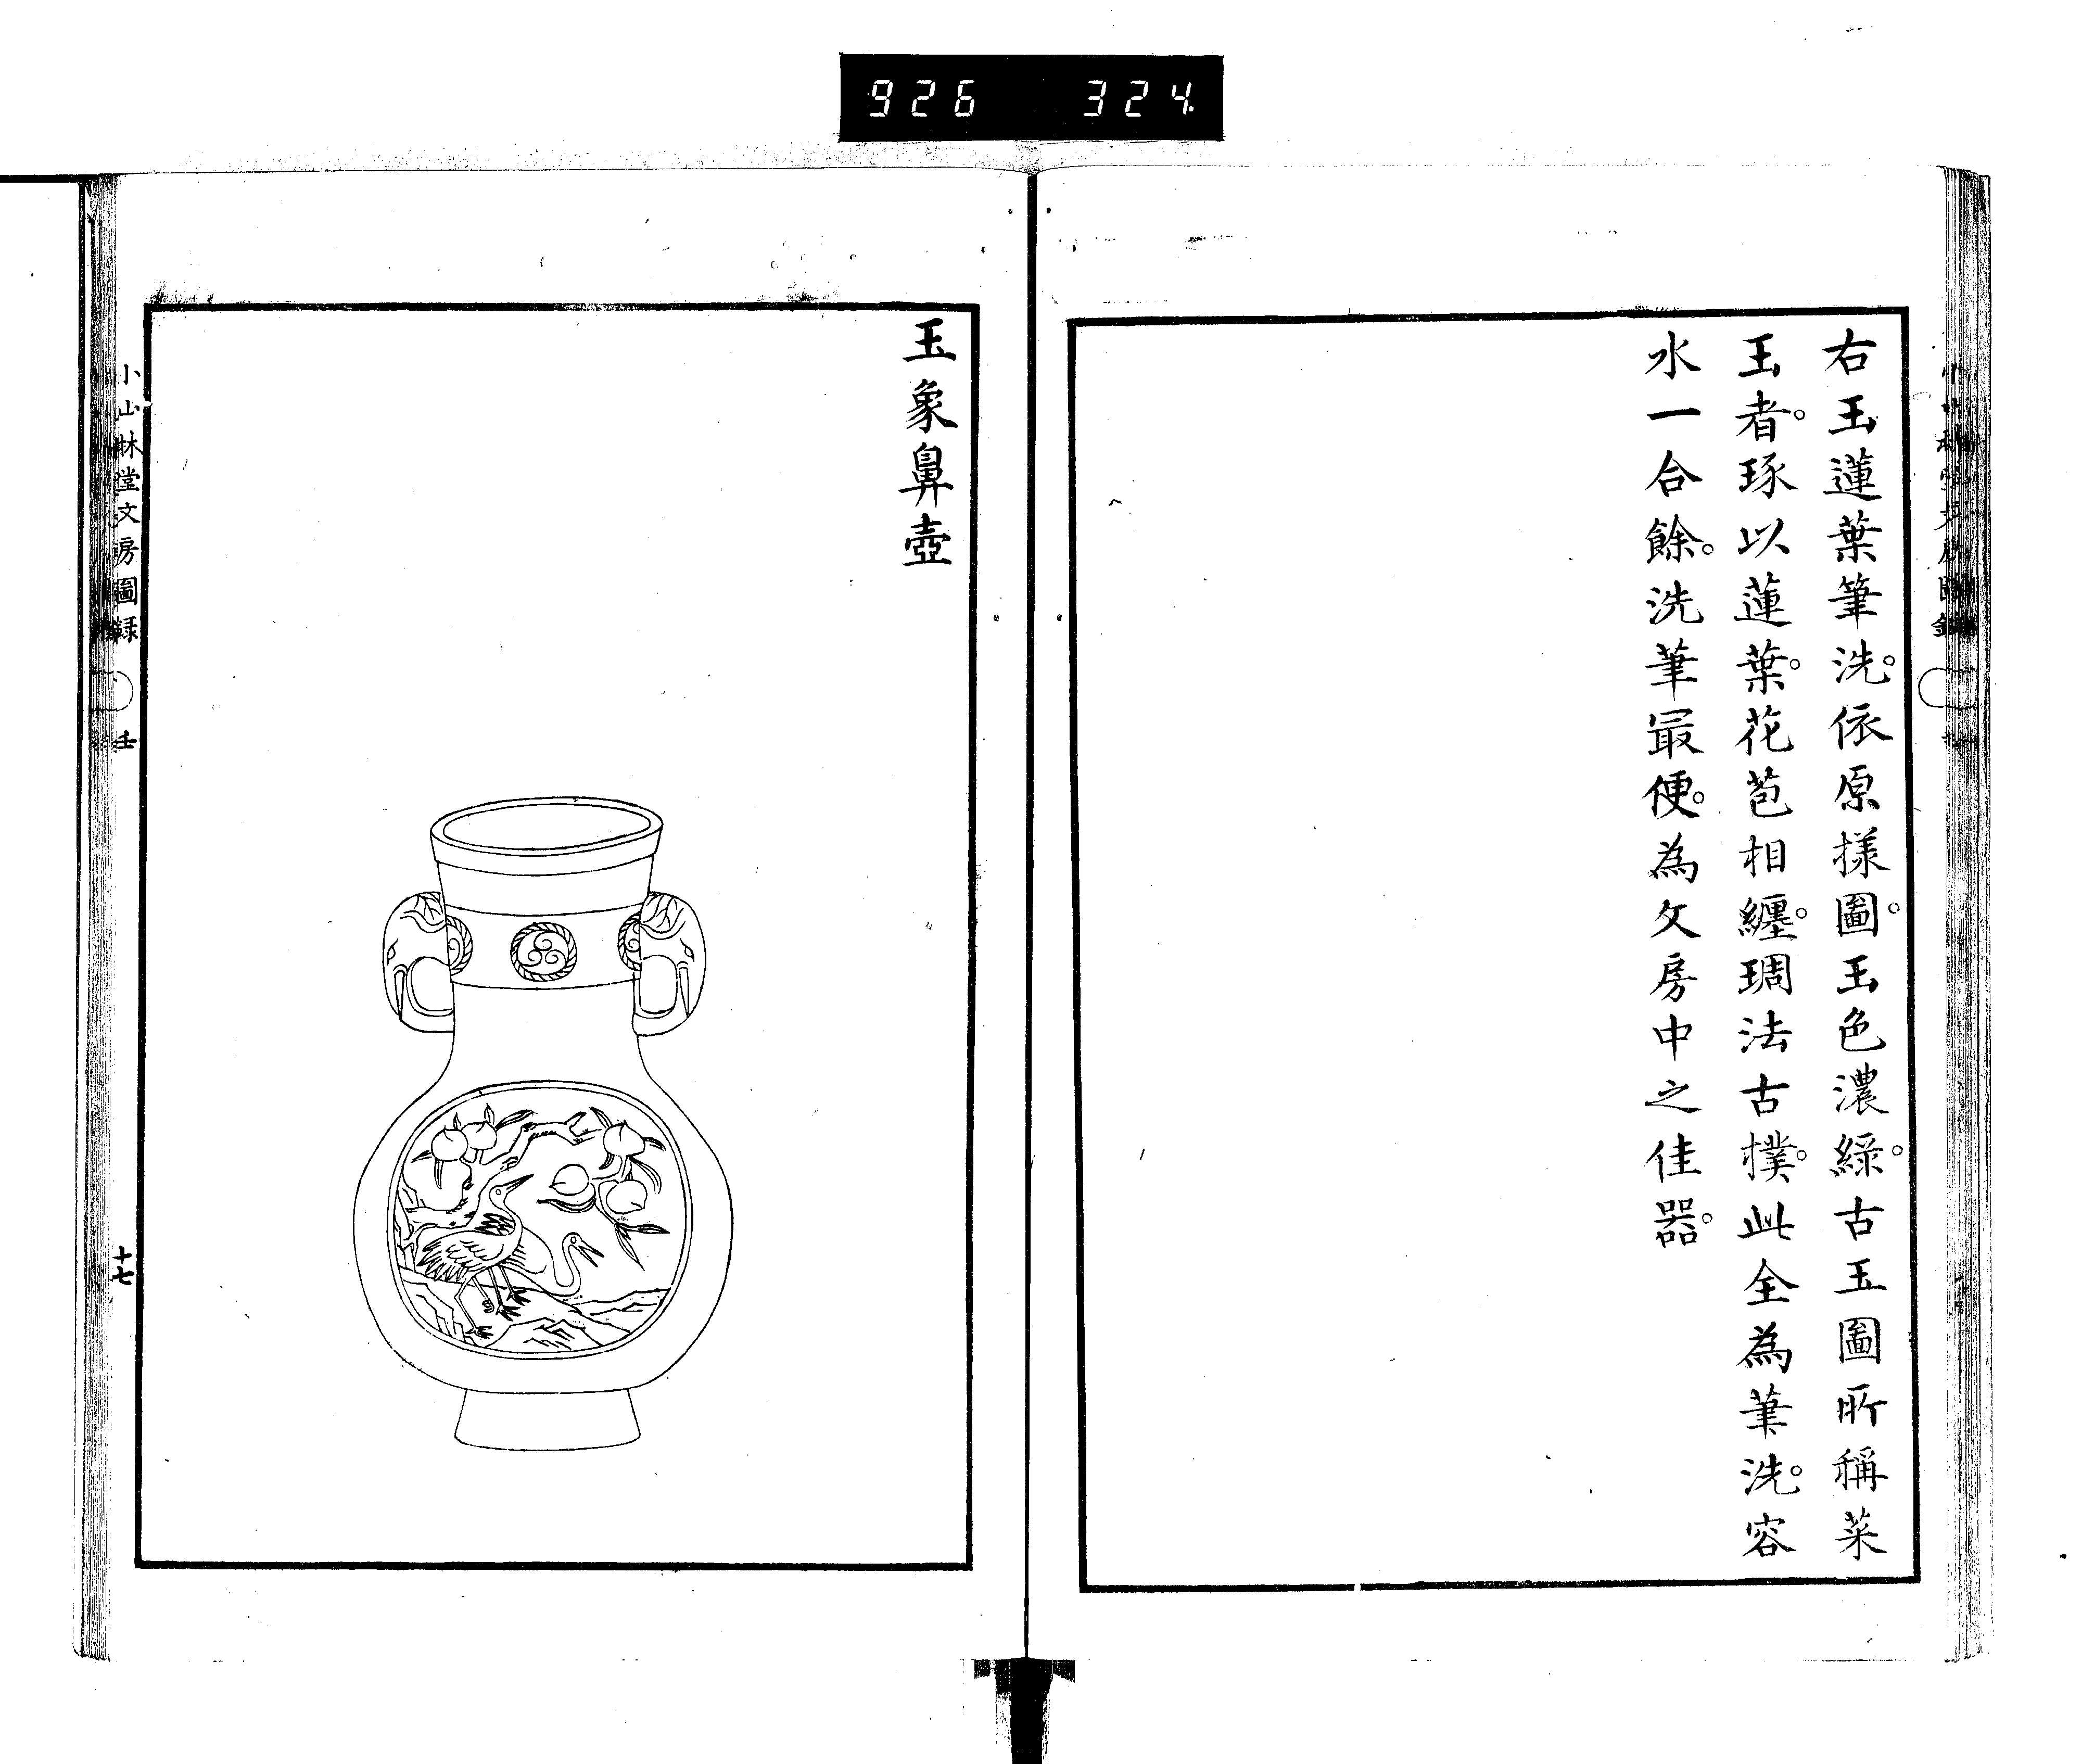 926 324
右玉蓮葉筆洗。依原樣圖。玉色濃綠。古玉圖所稱菜
玉者。琢以蓮葉。花苞相纏。琱法古樸。此全為筆洗。容
水一合餘。洗筆最便。為文房中之佳器。
玉象鼻壺
小山林堂文房圖録
壬
十七